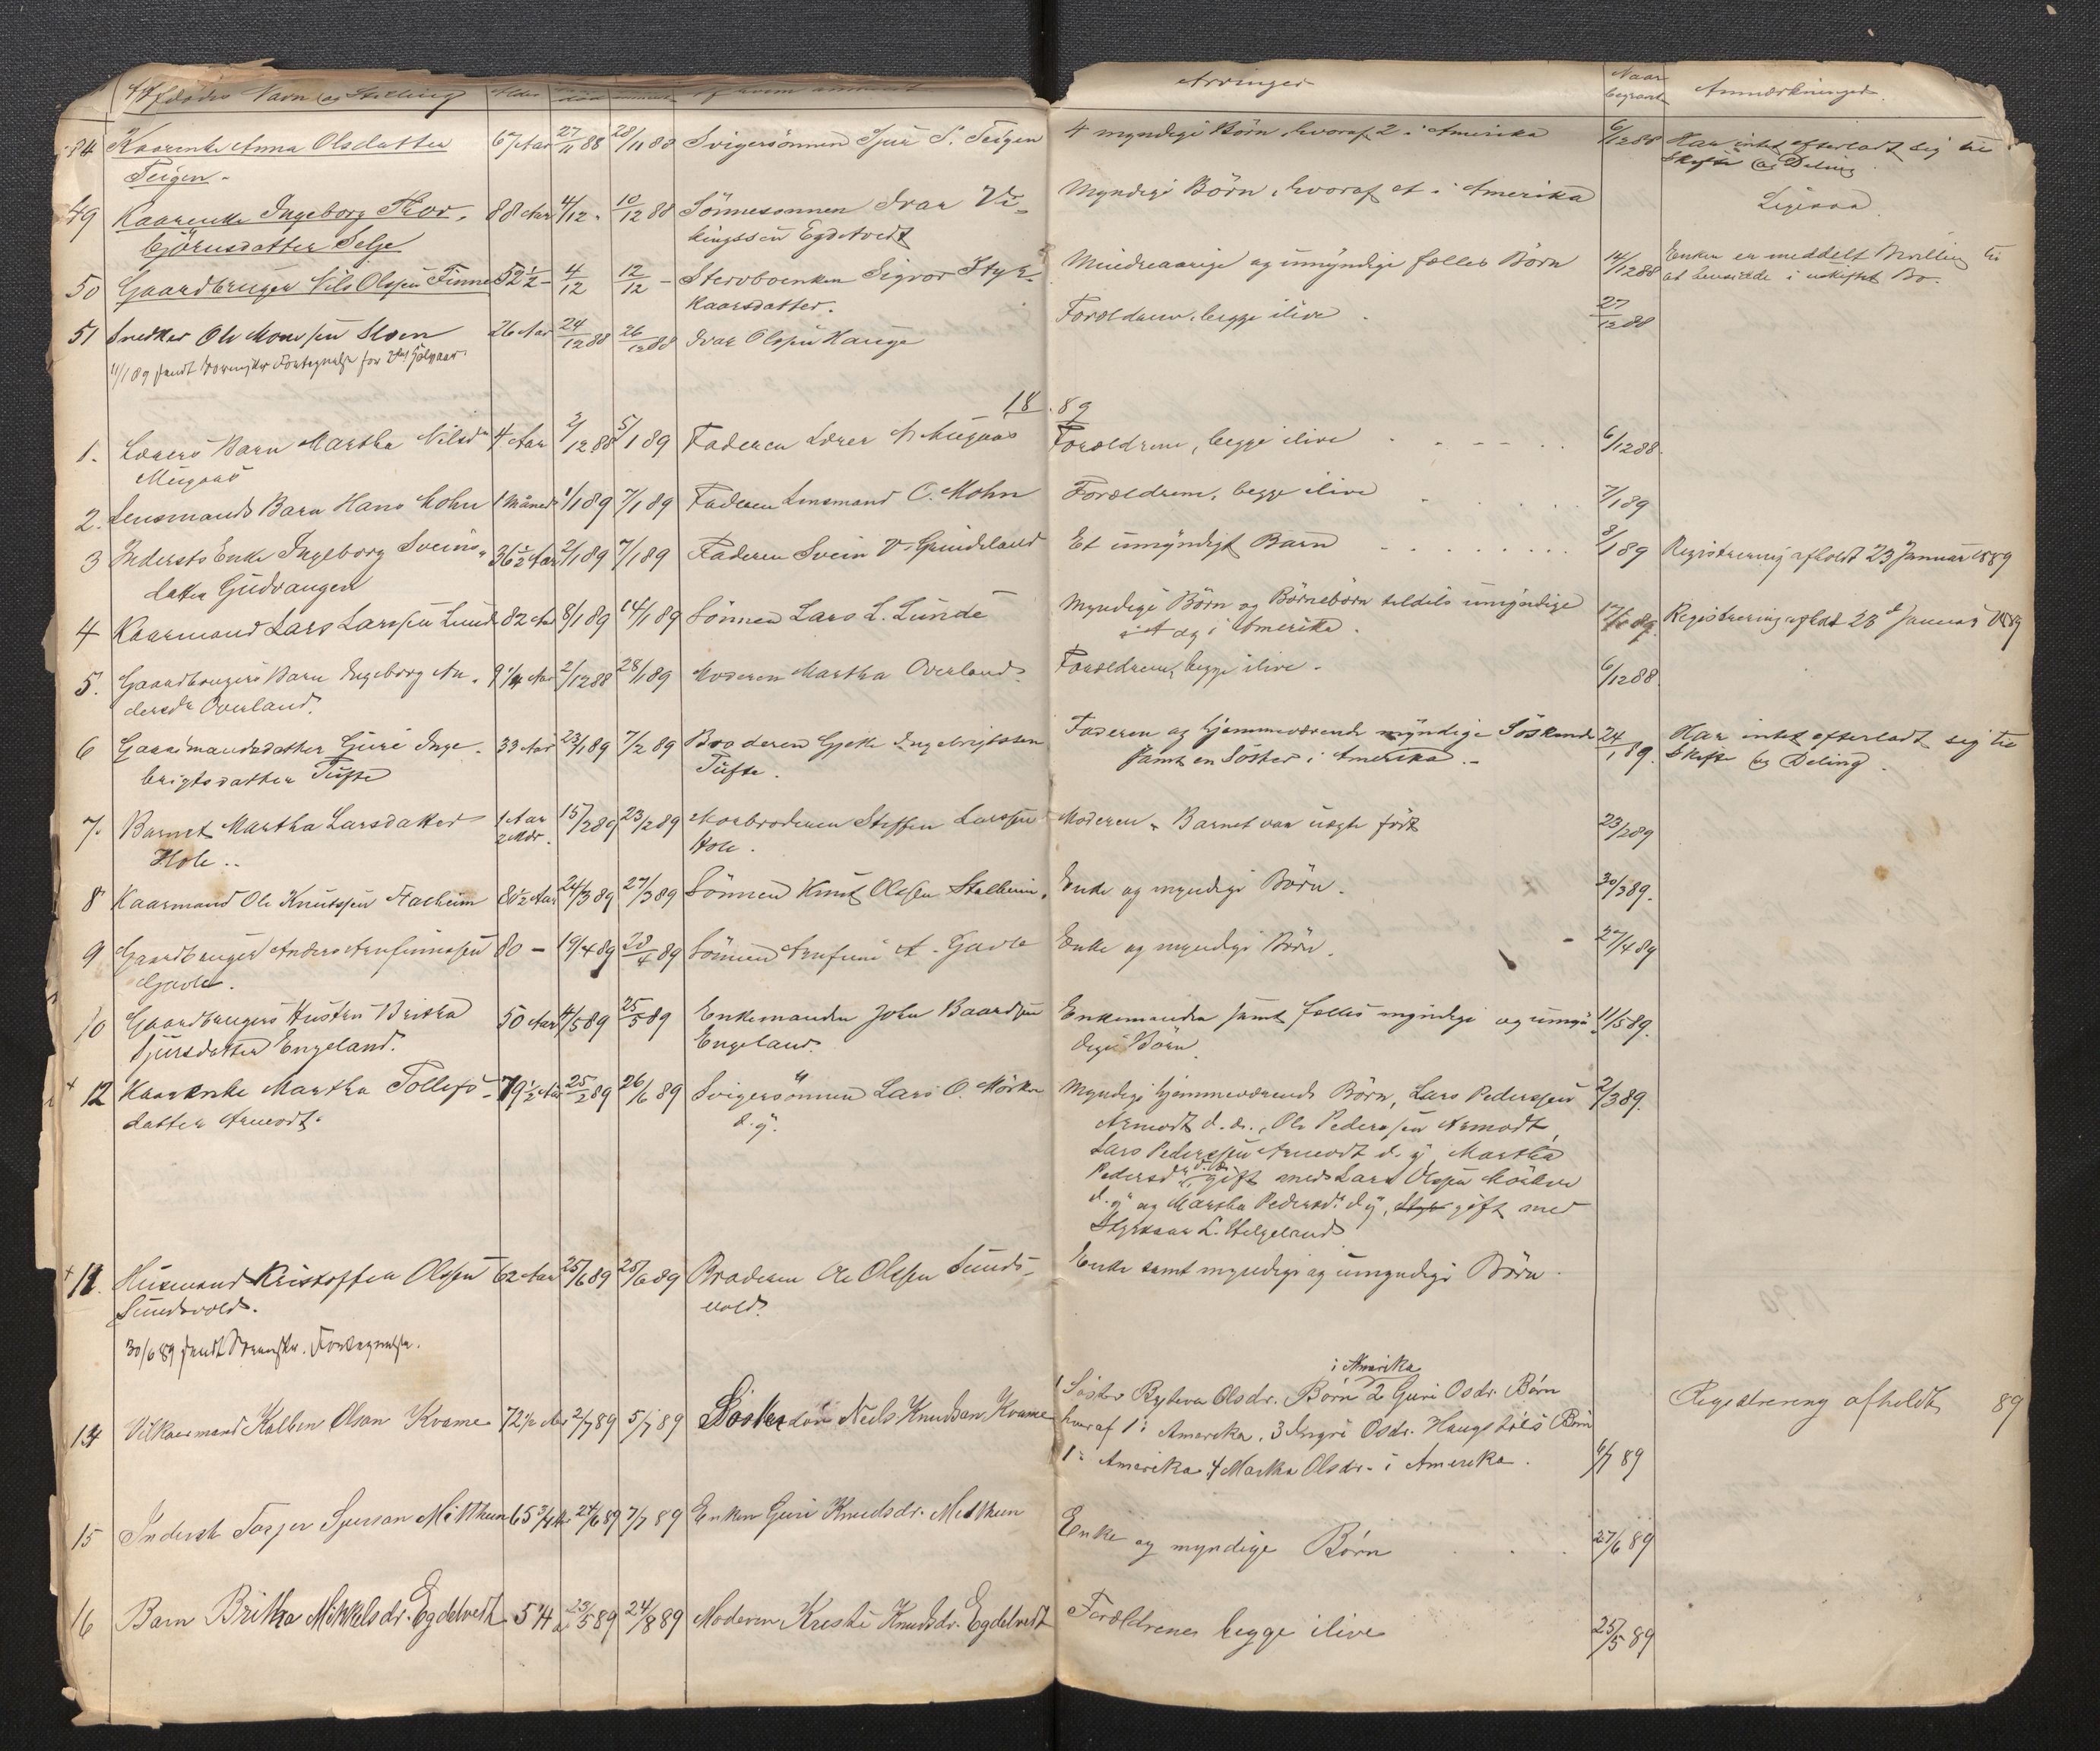 Afdødes Navn og Stilling Alder af hvem anmeldt Arvinger Naar begravet Anmærkninger
Kaarenke Anna Olsdatter 67 Aar 27/11 88 28/11 88 Svigersönnen Sjur S. Teigen 4 myndige Börn hvoraf 2 i Amerika 6/12 88 Har intet efterladt sig til
Teigen. Skifte og Deling
49 Kaarenke Ingeborg Thor- 88 Aar 4/12 - 10/12 88 Sönnesonnen Ivar Vi- Myndige Börn, hvoraf et i Amerika Ligesaa
björnsdatter Selje kingssön Egdetvedt
50 Gaardbruger Nils Olssen Finne 52 1/2 - 4/12 12/12 - Stervboenken Sigvor Styr- Mindreaarige og umyndige fælles Börn 14/12 88 Enken er meddelt Bevilling til
kaarsdatter. at hensidde i uskiftet Bo.
51 Snedker Ole Monssen Sloen 26 Aar 24/12 88 26/12 88 Ivar Olssen Hauge Forældrene, begge ilive 27/12 88
11/1 89 sendt Fortegnelse for
18 89
1. Lærers Barn Martha Nilsdr 4 Aar 2/12 88 5/1 89 Faderen Lærer N Mugaas Forældrene, begge ilive 6/12 88.
Mugaas
2. Lensmands Barn Hans Mohn 1 Maaned 1/1 89 7/1 89 Faderen Lensmand C. Mohn Forældrene, begge ilive 7/1 89
3 Inderste Enke Ingeborg Sveins- 36 1/2 Aar 2/1 89 7/1 89 Faderen Svein V. Grindeland Et umyndigt Barn 8/1 89 Registrering afholdt 23 Januar 1889
datter Gudvangen
4 Kaarmand Lars Larssen Lunde 82 Aar 8/1 89 14/1 89 Sönnen Lars L. Lunde Myndige Börn og Börnebörn tildels umyndige 17/1 89. Registrering afholdt 23d Januar 1889
og i Amerika.
5. Gaardbrugers Barn Ingeborg An- 9 1/4 Aar 2/12 88 28/1 89 Moderen Martha Overland. Forældrene, begge ilive. 6/12 88.
dersdr Overland.
6 Gaardmandsdatter Guri Inge- 33 Aar 23/1 89 7/2 89 Broderen Gjette Ingebrigtssen Faderen og hjemmeværende myndige Söskende 24/1 89. Har intet efterladt sig til
brigtsdatter Tufte Tufte. samt en Söster i Amerika. - Skifte og Deling.
7. Barnet Martha Larsdatter 1 Aar 15/2 89 23/2 89 Morbroderen Steffen Larssen Moderen. Barnet var uægte födt 23/2 89
Hole.. 2 Mdr. Hole.
8 Kaarmand Ole Knutssen Stalheim 81 1/2 Aar 24/3 89 27/3 89 Sönnen Knut Olssen Stalheim. Enke og myndige Börn. 30/3 89.
9 Gaardbruger Anders Arnfinnssen 80 - 19/4 89 28/4 89 Sönnen Arnfinn A. Gavle Enke og myndige Börn. 27/4 89
Gavle.
10 Gaardbrugers Hustru Britha 50 Aar 4/5 89 25/5 89 Enkemanden John Baardsen Enkemanden samt fælles myndige og umyn- 11/5 89.
Sjursdatter Engeland. Engeland. dige Börn.
+ 12 Kaarenke Martha Tollefs- 79 1/2 Aar 25/2 89 26/6 89 Svigersönnen Lars O. Mörkve Myndige hjemmeværende Börn, Lars Pederssen 2/3 89.
datter Armodt. d. y. Armodt d. æ., Ole Pederssen Armodt,
Lars Pederssen Armodt d. y, Martha
Pedersdr d. æ. gift med Lars Olssen Mörkve
d. y og Martha Pedersdr d y, gift med
Styrkaar L. Helgeland
+ 11. Husmand Kristoffer Olssen 62 Aar 25/6 89 28/6 89 Broderen Ole Olssen Sunds- Enke samt myndige og umyndige Börn.
Sundsvold. vold.
30/6 89 sendt Fortegnelse.
i Amerika
14 Vilkaarsmand Kolben Olsen Kvame 72 1/2 Aar 2/7 89 5/7 89 Søstersøn Neels Knudsen Kvame 1 Søster Rythera Olsdr. Børn 2 Guri Osdr. Børn Registrering afholdt 89
hvoraf 1 i Amerika, 3 Ingri Osdr. Børn
1 i Amerika 4 Martha Olsdr. i Amerika. 6/7 89
15 Inderst Torjer Sjursen Mitthun 65 3/4 Aar 24/6 89 7/7 89 Enken Guri Knudsdr. Mitthun Enke og myndige Børn 27/6 89
16 Barn Britha Mikkelsdr. Egdetvedt 5 1/4 23/5 89 24/8 89 Moderen Kristi Knudsdr. Egdetvedt Forældrenes begge ilive 25/5 89